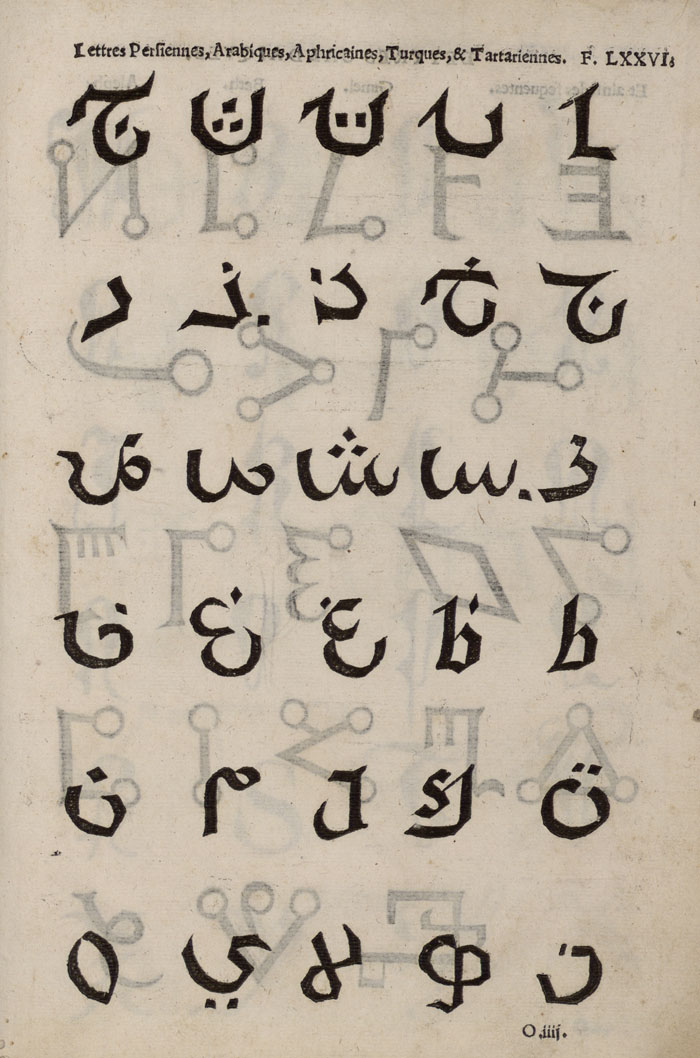 Lettres Persiennes, Arabiques, Aphricaines, Turques, & Tartariennes. F. LXXVI.
ا ب ت ث ج
ج خ ذ ذ ر
ز س ش ص ض
ط ظ غ غ ف
ق ك ل م ن
لا ي
O.iiij.